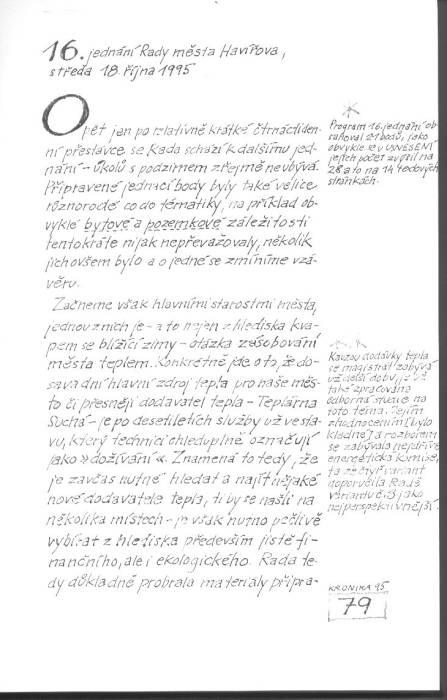 16. jednání Rady města Havířova,
středa 18. října 1995
Opět jen po relativně krátké čtrnáctiden-
ní přestávce se Rada schází k dalšímu jed-
nání - úkolů s podzimem zřejmě neubývá.
Připravené jednací body byly také velice
různorodé co do tématiky, na příklad ob-
vyklé bytové a pozemkové záležitosti
tentokráte nijak nepřevažovaly, několik
jich ovšem bylo a o jedné se zmíníme v zá-
věru.
Začneme však hlavními starostmi města,
jednou z nich je - a to nejen z hlediska kva-
pem se blížící zimy - otázka zásobování
města teplem. Konkrétně jde o to, že do-
savadní hlavní zdroj tepla pro naše měs-
to či přesněji dodavatel tepla - Teplárna
Suchá - je po desetiletích služby už ve sta-
vu, který technici ohleduplně označují
jako »dožívání«. Znamená to tedy, že
je zavčas nutné hledat a najít nějaké
nové dodavatele tepla, ti by se našli na
několika místech - je však nutno pečlivě
vybírat z hlediska především jistě fi-
nančního, ale i ekologického. Rada te-
dy důkladně probrala materiály připra-
Program 16. jednání ob-
sahoval 21 bodů, jako
obvykle se v USNESENÍ
jejich počet zvýšil na
28 a to na 14 textových
stránkách.
Kauzou dodávky tepla
se magistrát zabývá
už delší dobu, je už
také zpracována
odborná studie na
toto téma. Jejím
zhodnocením (bylo
kladné) a rozborem
se zabývala nejdříve
energetická komise,
ta ze čtyř variant
doporučila Radě
variantu č. 3 jako
nejperspektivnější.
KRONIKA 95
79